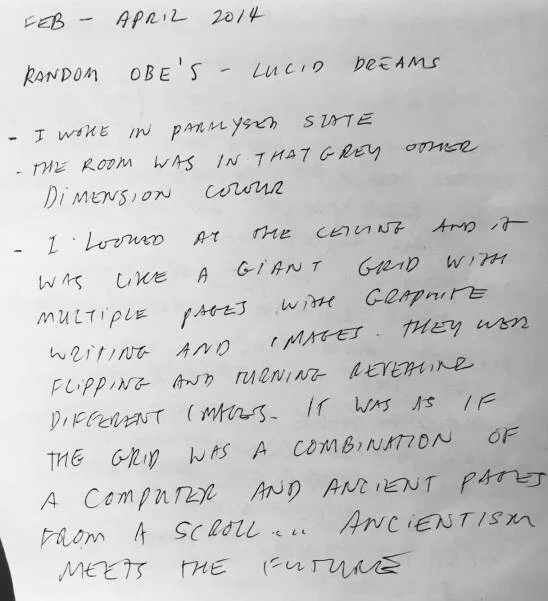 FEB - APRIL 2014
RANDOM OBE'S - LUCID DREAMS
- I WOKE IN PARALYSED STATE
- THE ROOM WAS IN THAT GREY OTHER
DIMENSION COLOUR
- I LOOKED AT THE CEILING AND IT
WAS LIKE A GIANT GRID WITH
MULTIPLE PAGES WITH GRAPHITE
WRITING AND IMAGES. THEY WERE
FLIPPING AND TURNING REVEALING
DIFFERENT IMAGES. IT WAS AS IF
THE GRID WAS A COMBINATION OF
A COMPUTER AND ANCIENT PAGES
FROM A SCROLL... ANCIENTISM
MEETS THE FUTURE